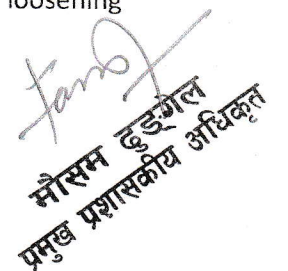 loosening
मौसम ढुङ्गेल
प्रमुख प्रशासकीय अधिकृत